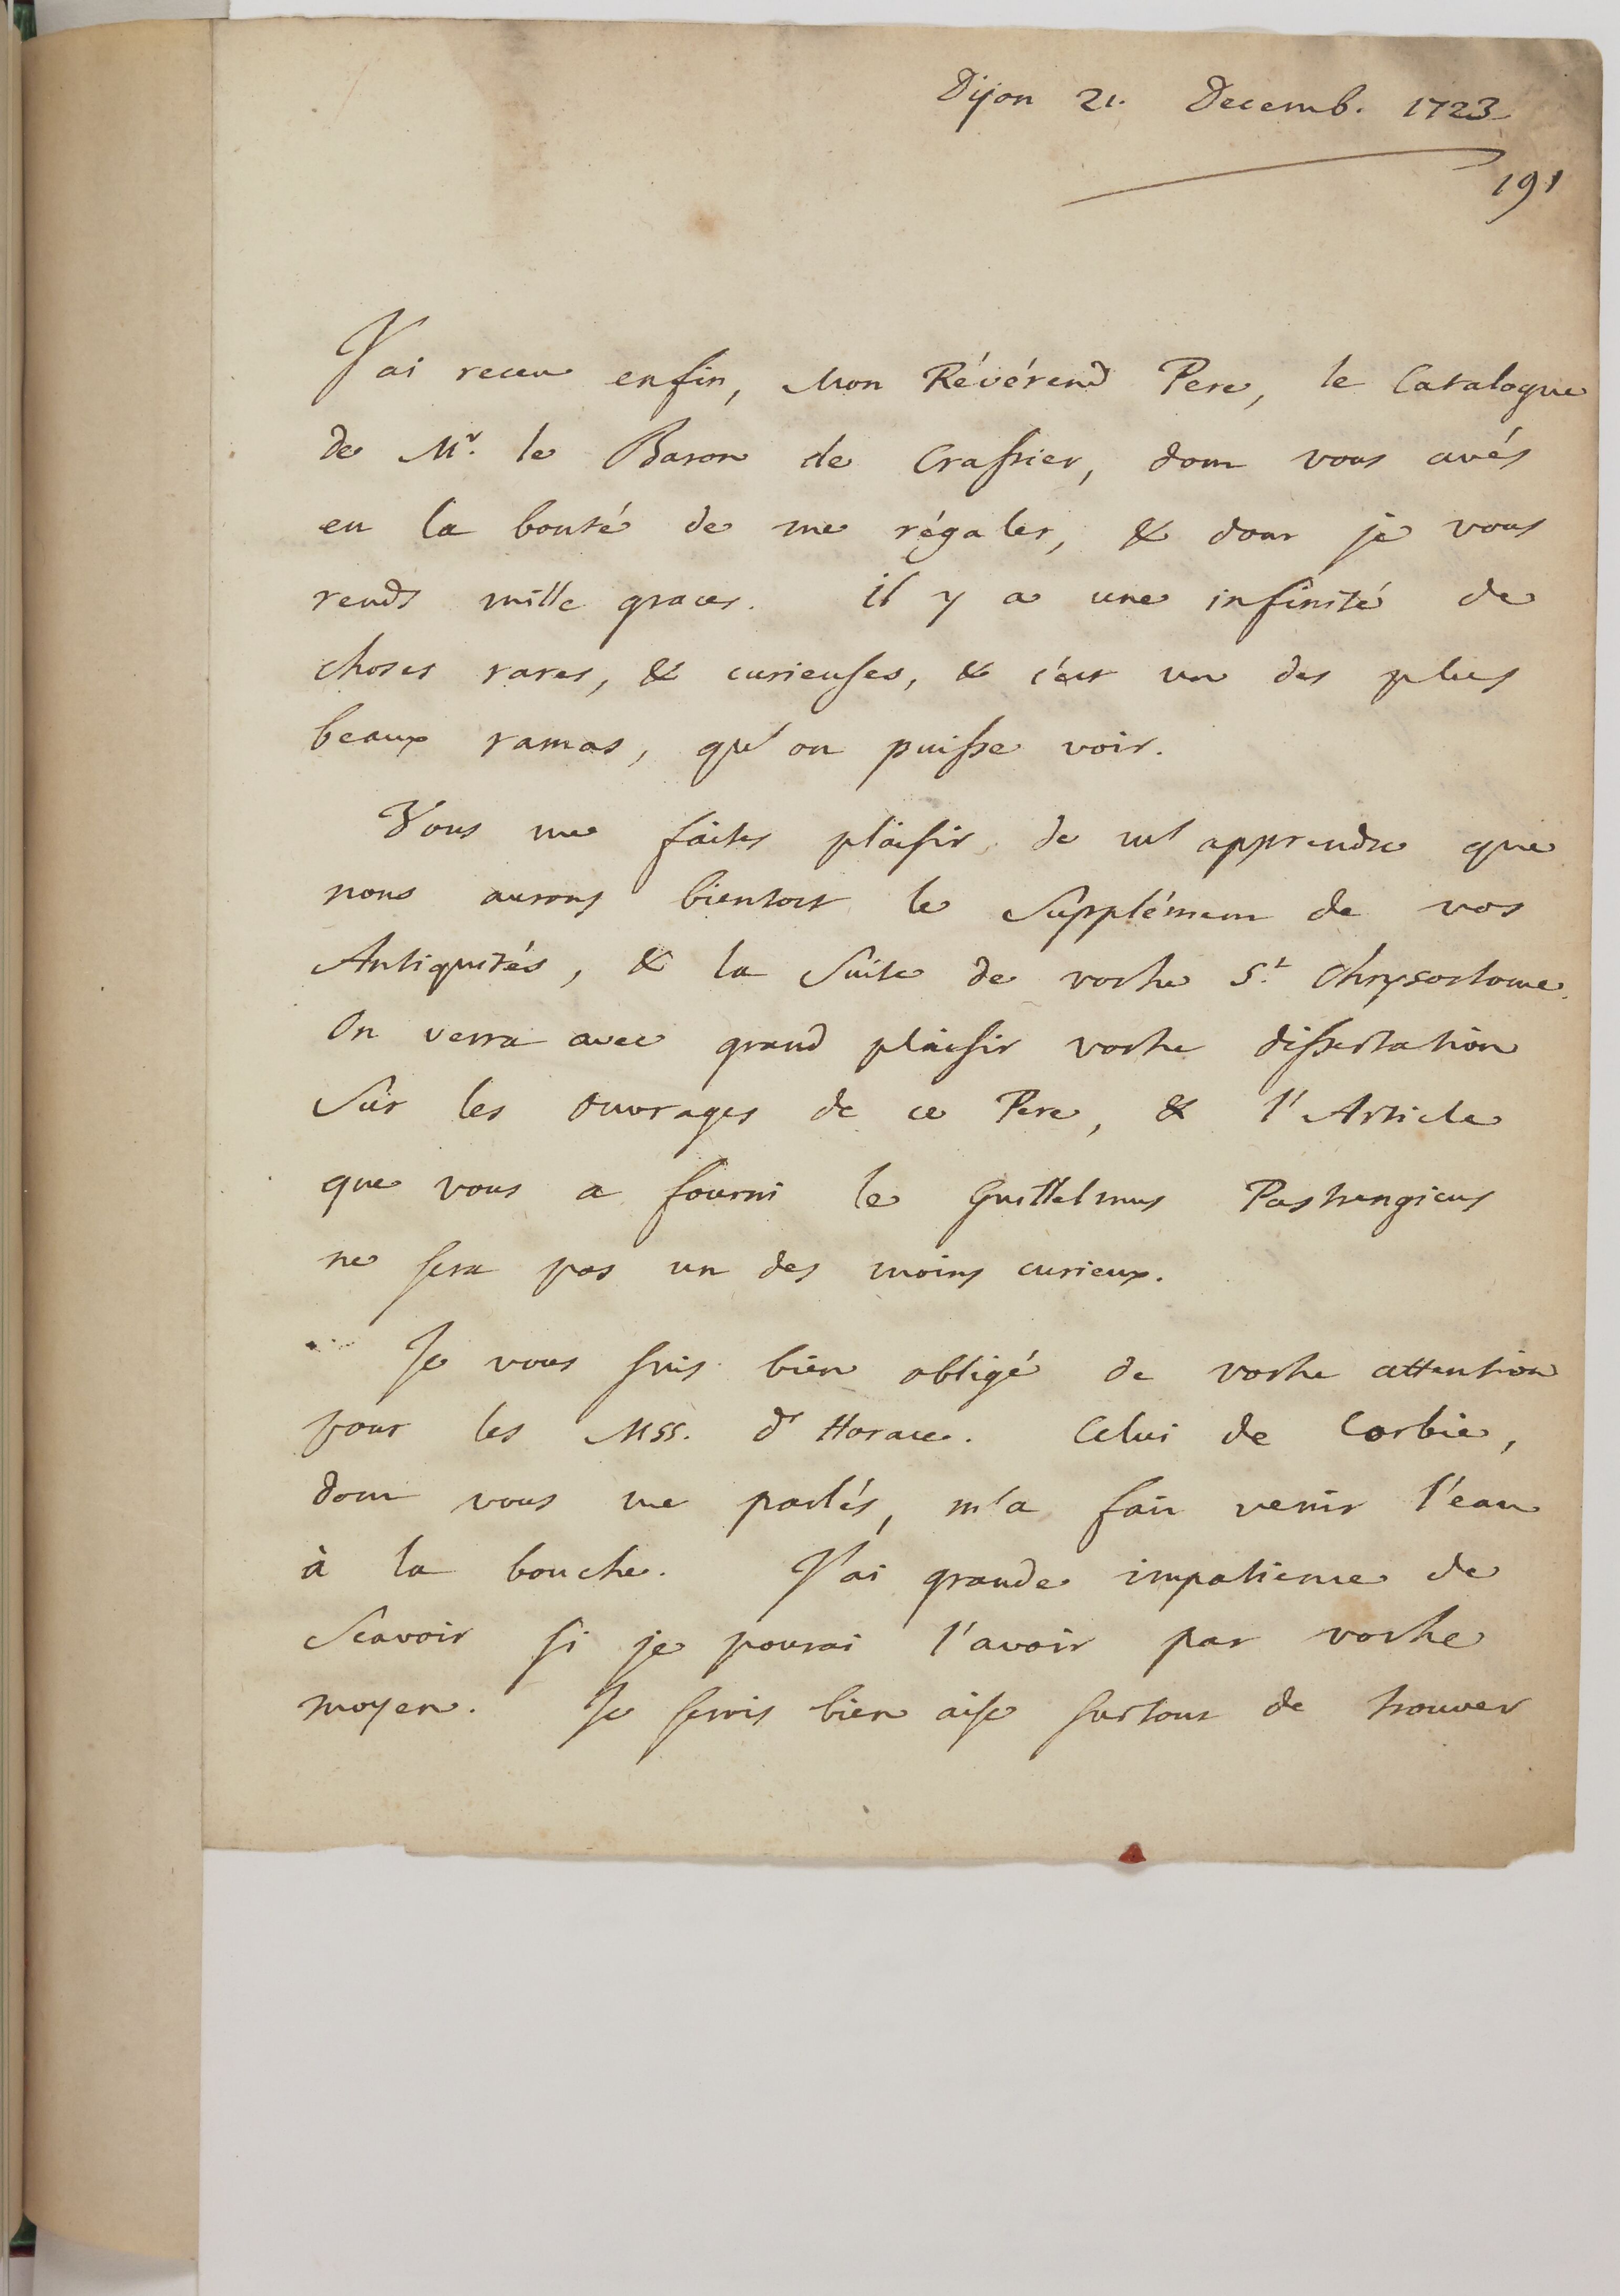 Dijon 21. Decemb. 1723
191
J'ai receu enfin, Mon Révérend Pere, le Catalogue
de Mr. le Baron de Crassier, dont vous avés
eu la bonté de me régaler, & dont je vous
rends mille graces. il y a une infinité de
choses rares, & curieuses, & c'est un des plus
beaux ramas, qu'on puisse voir.
Vous me faites plaisir de m'apprendre que
nous aurons bientost le Supplément de vos
Antiquités, & la Suite de vostre St. Chrysostome.
On verra avec grand plaisir vostre dissertation
Sur les ouvrages de ce Pere, & l'Article
que vous a fourni le Guillelmus Pastrengicus
ne sera pas un des moins curieux.
Je vous suis bien obligé de vostre attention
pour les MSS. d'Horace. Celui de Corbie,
dont vous me parlés, m'a fait venir l'eau
à la bouche. J'ai grande impatience de
Scavoir si je pourai l'avoir par vostre
moyen. Je serois bien aise surtout de trouver